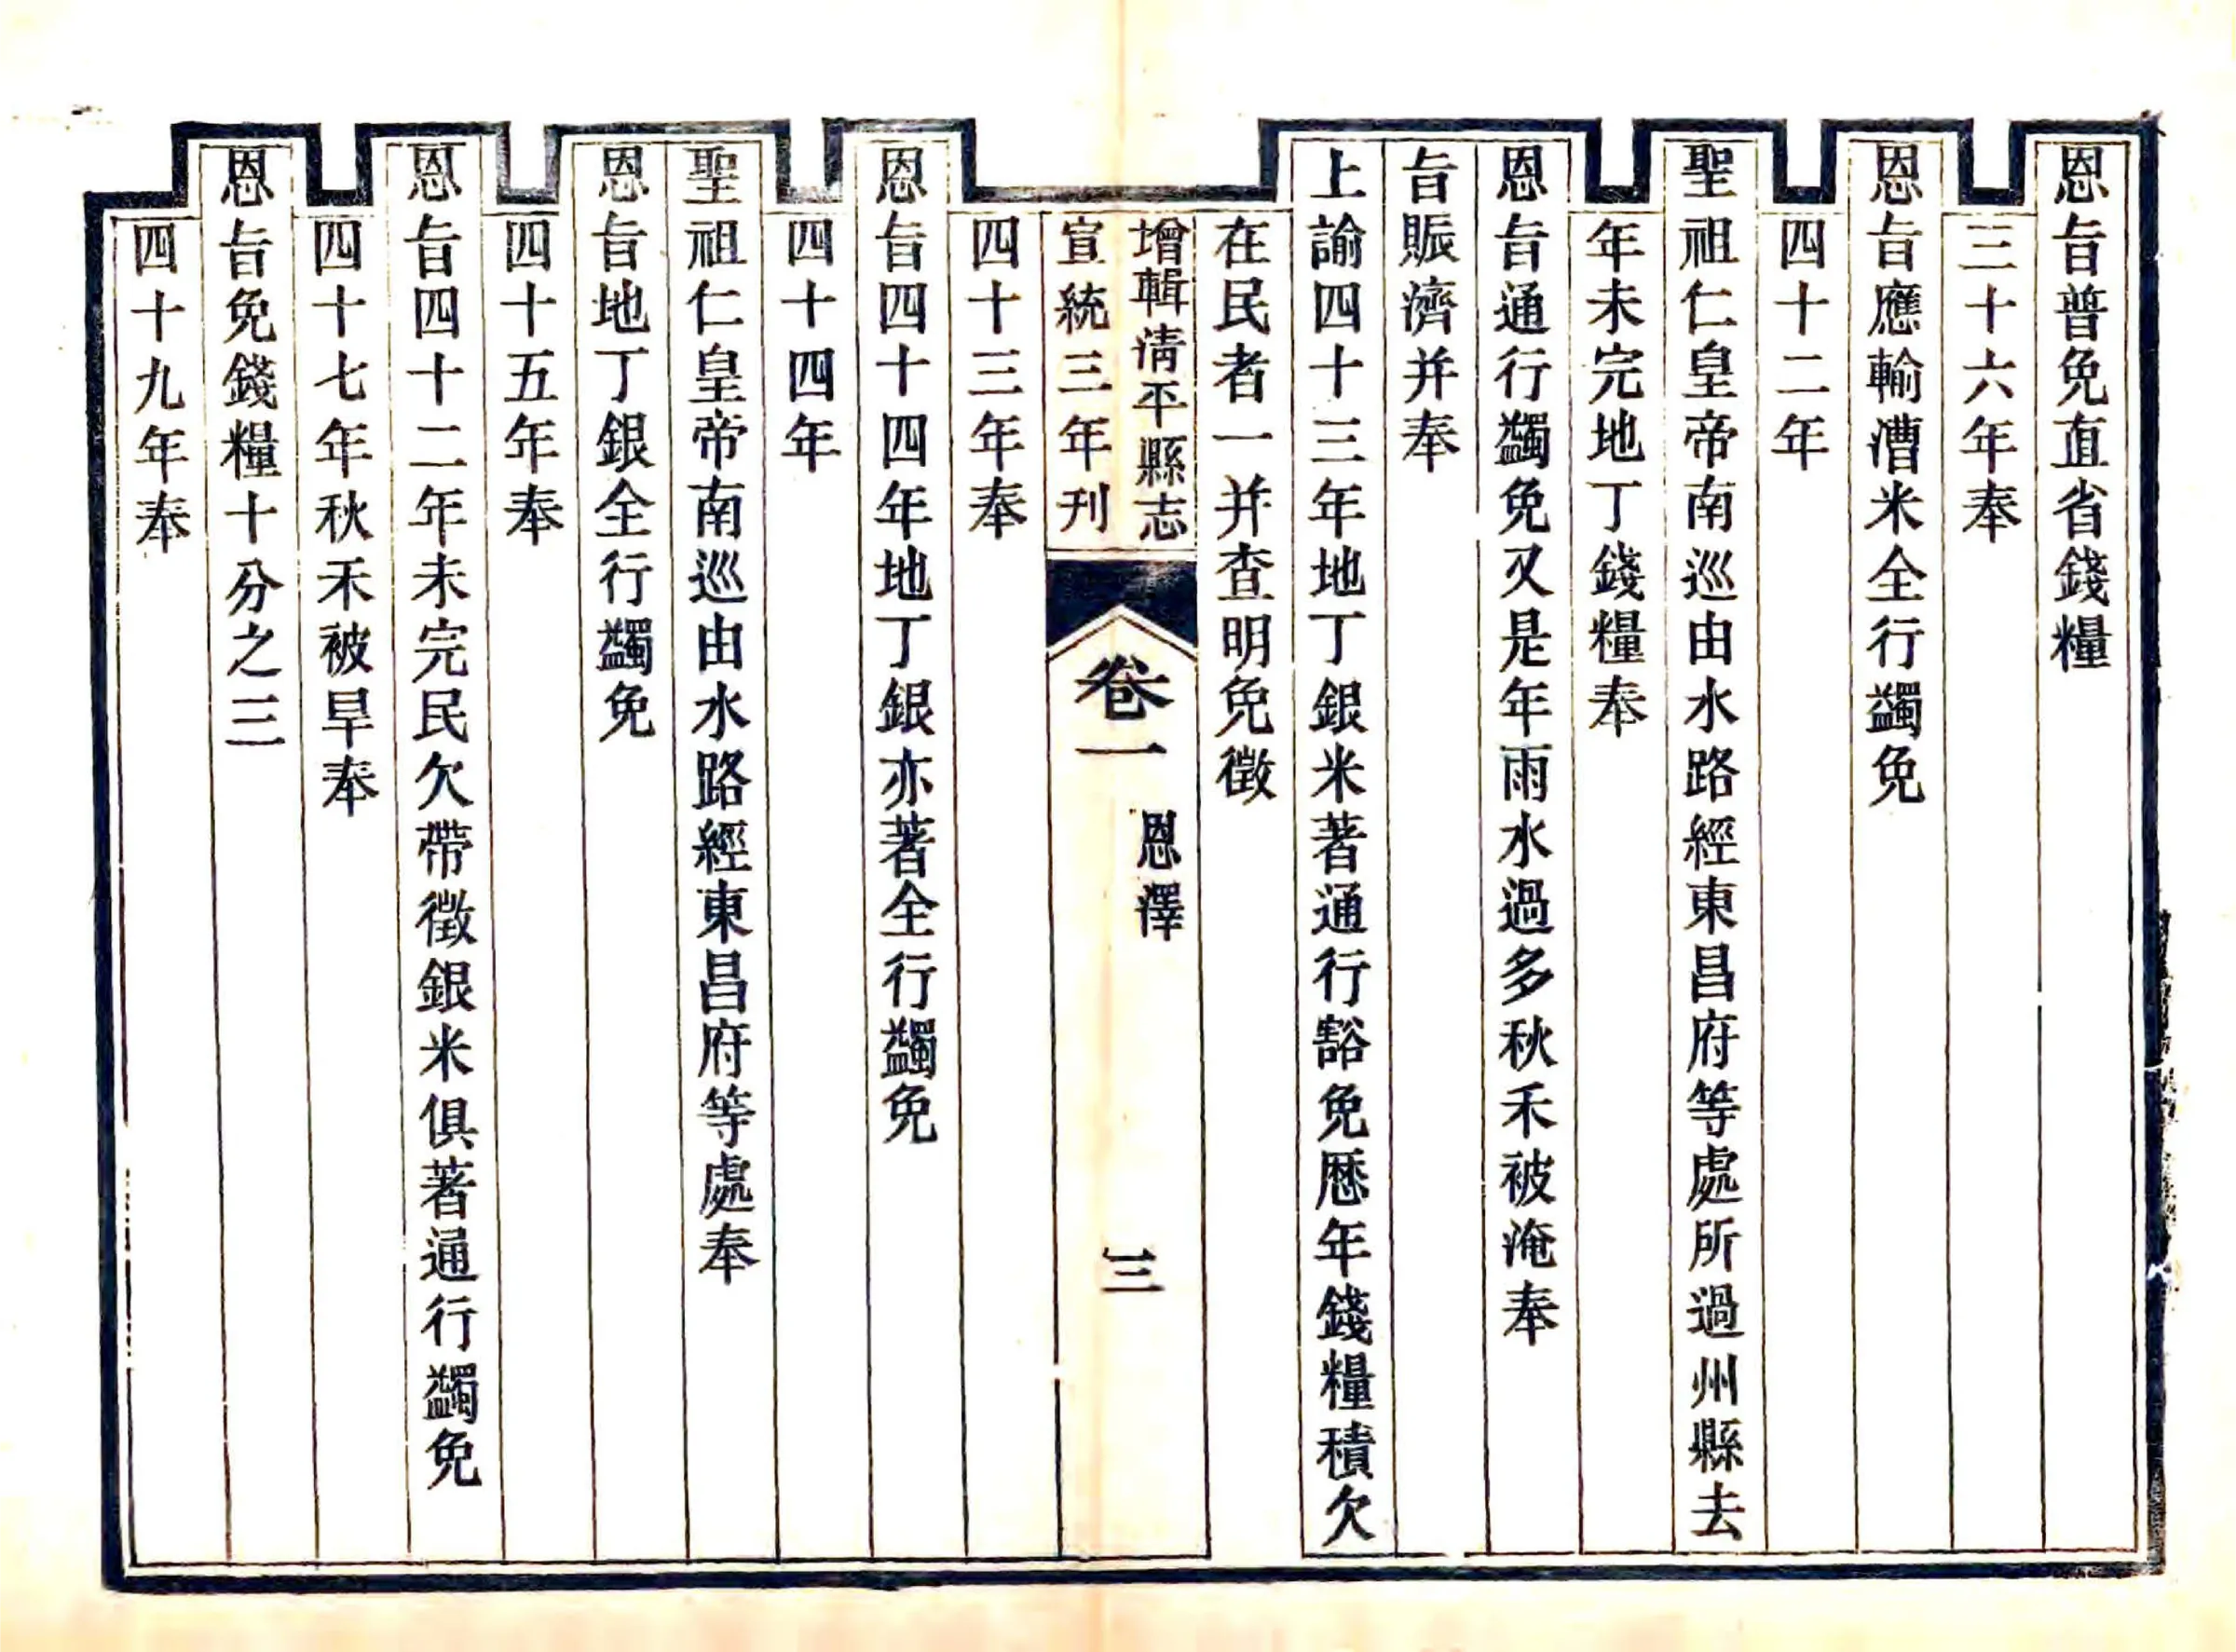 恩旨普免直省錢糧
三十六年奉
恩旨應輸漕米全行蠲免
四十二年
聖祖仁皇帝南巡由水路經東昌府等處所過州縣去
年未完地丁錢糧奉
恩旨通行蠲免又是年雨水過多秋禾被淹奉
旨賑濟并奉
上諭四十三年地丁銀米著通行豁免歷年錢糧積欠
在民者一并查明免徵
增輯清平縣志
宣統三年刊
卷一
恩澤
三
四十三年奉
恩旨四十四年地丁銀亦著全行蠲免
四十四年
聖祖仁皇帝南巡由水路經東昌府等處奉
恩旨地丁銀全行蠲免
四十五年奉
恩旨四十二年未完民欠帶徵銀米俱著通行蠲免
四十七年秋禾被旱奉
恩旨免錢糧十分之三
四十九年奉